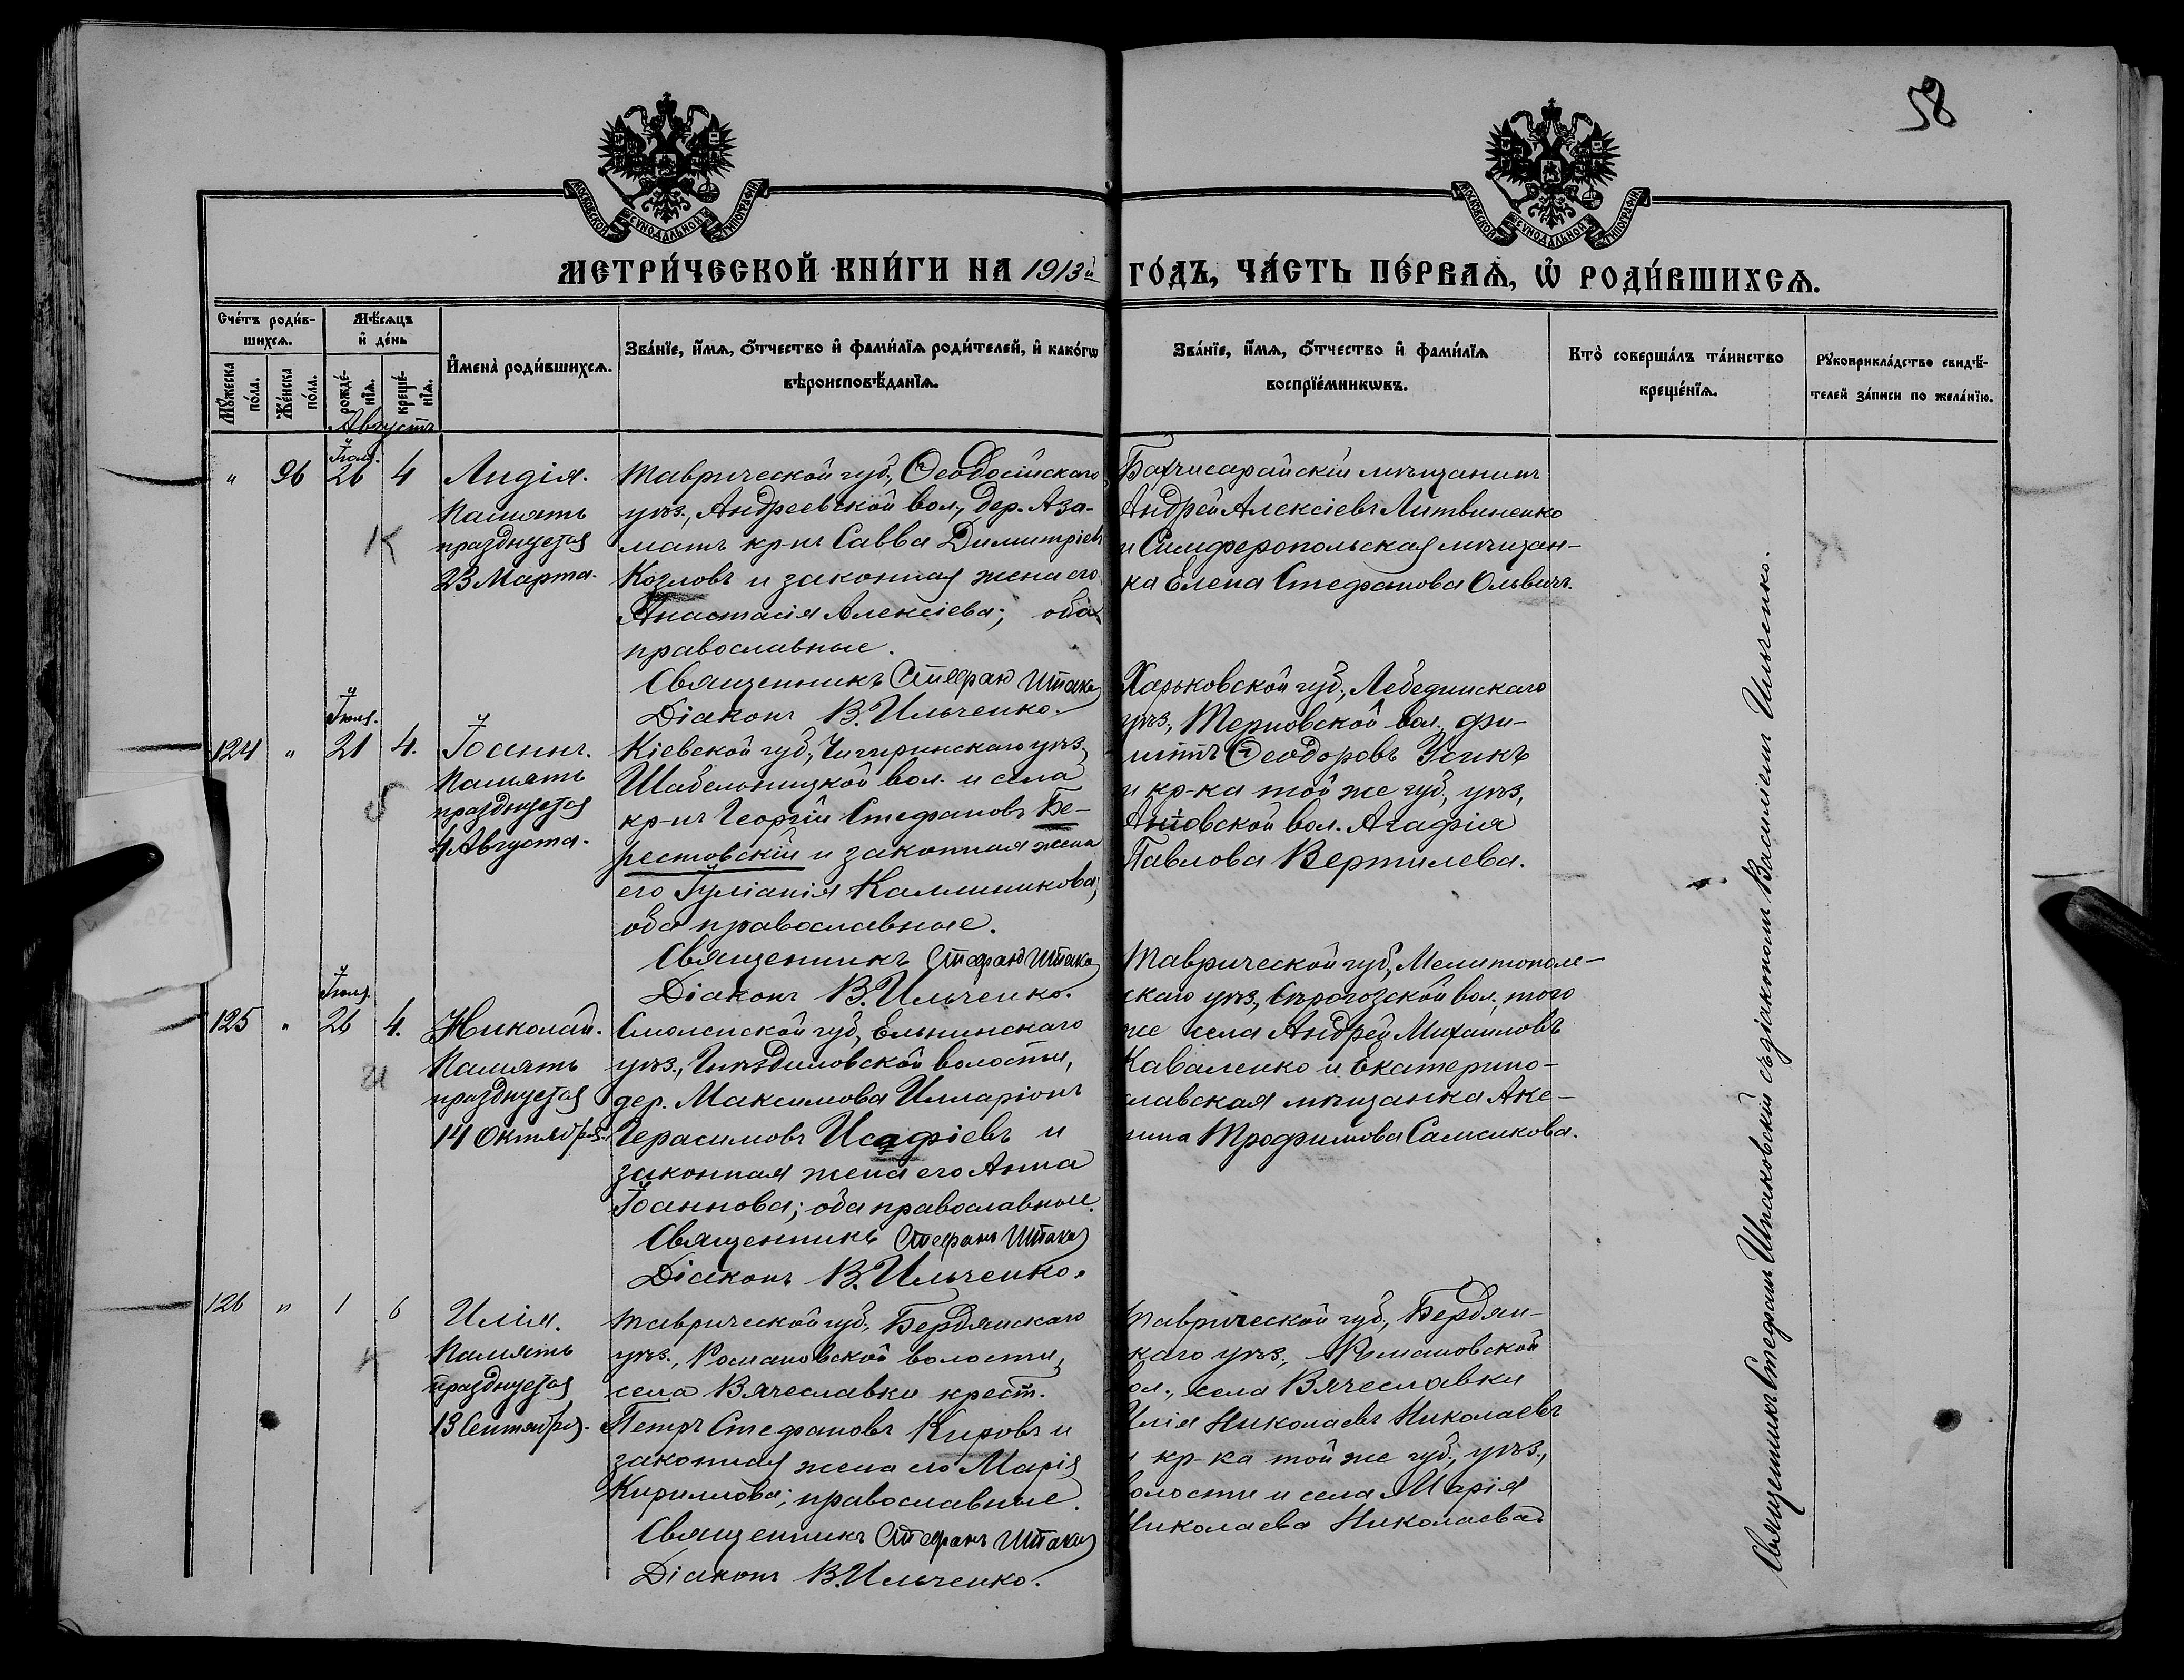 58
МОСКОВСКОЙ СѴНОДАЛЬНОЙ ТИПОГРАФІИ
МОСКОВСКОЙ СѴНОДАЛЬНОЙ ТИПОГРАФІИ
МЕТРИ́ЧЕСКОЙ КНИ́ГИ НА 1913й ГО́ДЪ, ЧА́СТЬ ПЕ́РВАѦ, Ѡ҆ РОДИ́ВШИХСѦ.
Сче́тъ роди́в-
шихсѧ.
Мꙋ́жеска по́ла.
Же́нска по́ла.
Мѣ́сѧцъ
и҆ де́нь
рожде́-
нїѧ.
креще́-
нїѧ.
И҆мена̀ роди́вшихсѧ.
Зва́нїе, и҆́мѧ, ѻ҆́тчество и҆ фами́лїѧ роди́телей, и҆ како́гѡ
вѣроисповѣ́данїѧ.
Зва́нїе, и҆́мѧ, ѻ҆́тчество и҆ фами́лїѧ
воспрїе́мникѡвъ.
Кто̀ соверша́лъ та́инство
креще́нїѧ.
Рꙋкоприкла́дство свидѣ́-
телей за́писи по жела́нїю.
Августъ
Іюля.
" 96 26 4 Лидія.
Память
празднуется
23 Марта.
К
Таврической губ., Ѳеодосійскаго
уѣз., Андреевской вол., дер. Аза-
матъ кр-нъ Савва Димитріевъ
Козловъ и законная жена его
Анастасія Алексіева; оба
православные.
Священникъ Стефанъ Шпаков
Діаконъ В. Ильченко.
Бахчисарайскій мѣщанинъ
Андрей Алексіевъ Литвиненко
и Симферопольская мѣщан-
ка Елена Стефанова Ольвичъ.
Іюля.
124 " 21 4. Іоаннъ.
Память
празднуется
4 Августа.
Кіевской губ., Чигиринскаго уѣз.,
Шабельницкой вол. и села
кр-нъ Георгій Стефановъ Бе-
рестовскій и законная жена
его Іуліанія Каллиникова;
оба православные.
Священникъ Стефанъ Шпаков
Діаконъ В. Ильченко.
Харьковской губ., Лебединскаго
уѣз., Терновской вол. Фи-
липпъ Ѳеодоровъ Усикъ
и кр-ка той же губ., уѣз.,
вол. Агафія
Павлова Вертилева.
Іюля.
125 " 26 4. Николай.
Память
празднуется
14 Октября.
Смоленской губ., Ельнинскаго
уѣз., Гнѣздиловской волости,
дер. Максимова Илларіонъ
Герасимовъ Исафіевъ и
законная жена его Анна
Іоаннова; оба православные.
Священникъ Стефанъ Шпаков
Діаконъ В. Ильченко.
Таврической губ., Мелитополь-
скаго уѣз., Сѣрогозской вол. того
же села Андрей Михаиловъ
Каваленко и Екатерино-
славская мѣщанка Аке-
нина Трофимова Самсикова.
126 " 1 6 Илія.
Память
празднуется
13 Сентября.
К
Таврической губ., Бердянскаго
уѣз., Романовской волости,
села Вячеславки крест.
Петръ Стефановъ Кировъ и
законная жена его Марія
Кириллова; православные.
Священникъ Стефанъ Шпаков
Діаконъ В. Ильченко.
Таврической губ., Бердян-
скаго уѣз., Романовской
вол., села Вячеславки
Илія Николаевъ Николаевъ
и кр-ка той же губ., уѣз.,
волости и села Марія
Николаева Николаева
Священникъ Стефанъ Шпаковскій съ діакономъ Василіемъ Ильченко.